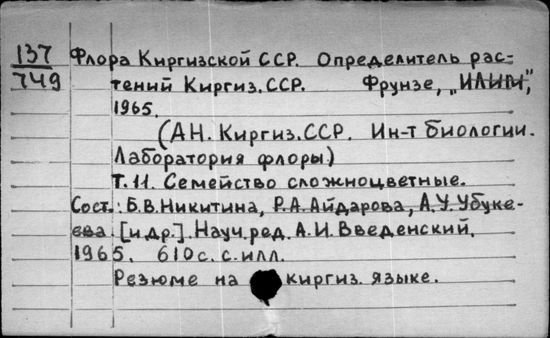 137
749
Флора Киргизской ССР. Определитель рас-
тений Киргиз. ССР. Фрунзе, „Илим",
1965.
(АН. Киргиз. ССР. Ин-т биологии.
Лаборатория флоры)
Т. 11. Семейство сложноцветные.
Сост.: Б.В. Никитина, Р.А. Айдарова, А.У. Убуке-
ева [и др.]. Науч. ред. А.И. Введенский.
1965. 610 с. с илл.
Резюме на киргиз. языке.